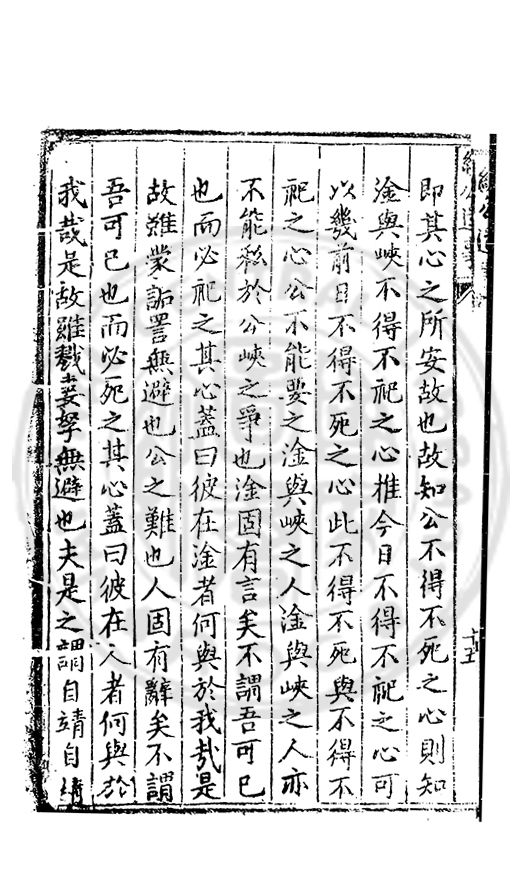 即其心之所安故也故知公不得不死之心則知
淦與峽不得不祀之心推今日不得不祀之心可
以幾前日不得不死之心此不得不死與不得不
祀之心公不能要之淦與峽之人淦與峽之人亦
不能私於公峽之爭也淦固有言矣不謂吾可已
也而必祀之其心蓋曰彼在淦者何與於我哉是
故雖蒙詬詈無避也公之難也人固有辭矣不謂
吾可已也而必死之其心蓋曰彼在人者何與於
我哉是故雖戮妻孥無避也夫是之謂自靖自
十五